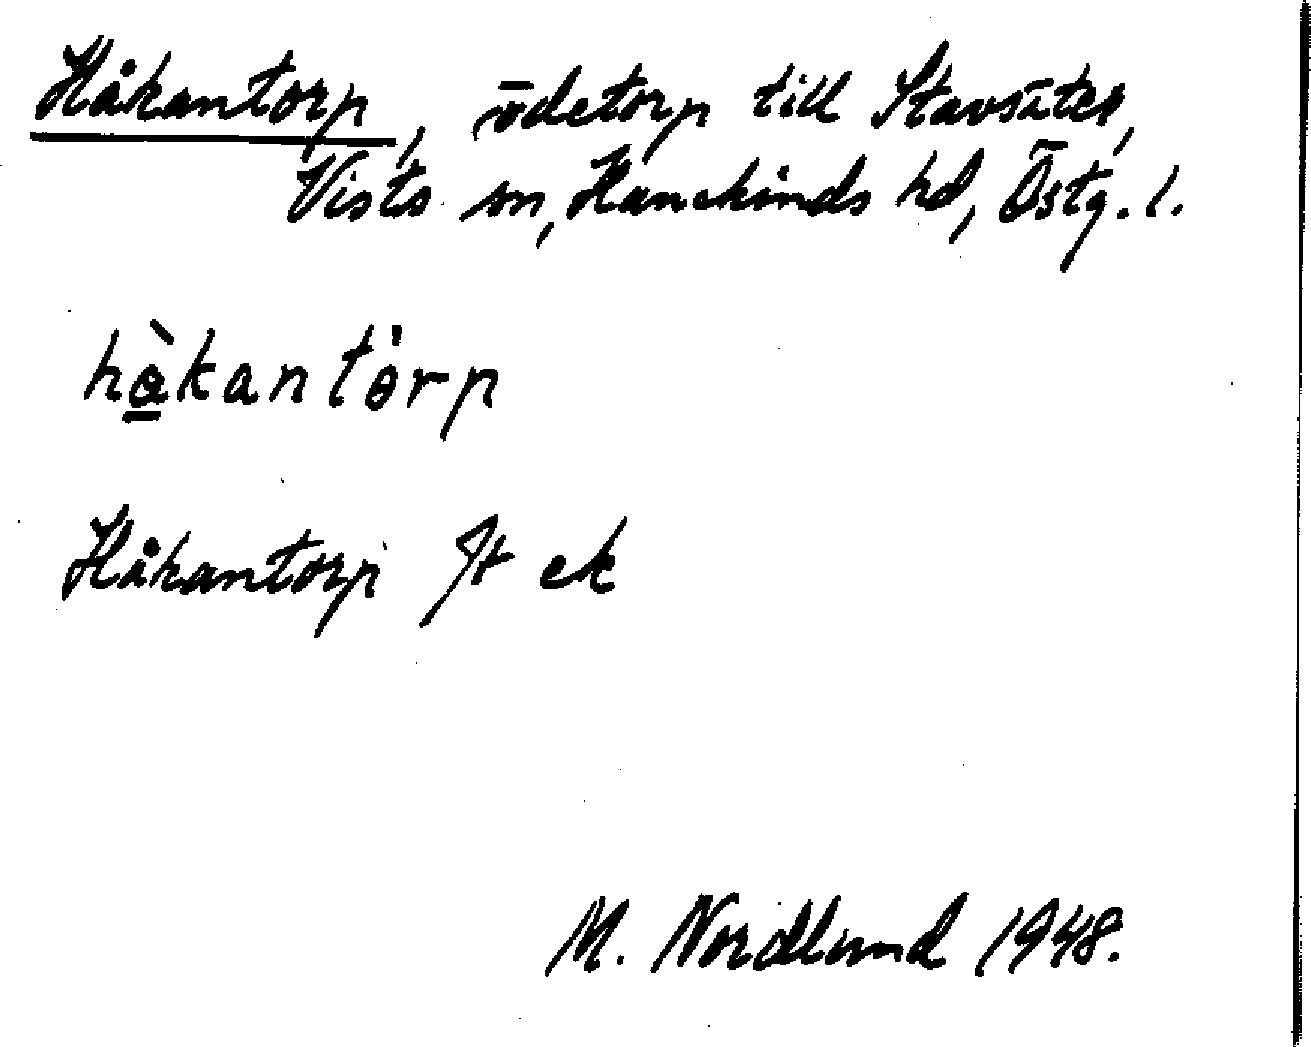 Håkantorp, ödetorp till Stavsäter,
Vists sn, Hanekinds hd, Östg. l.
hå̀kantòrp
Håkantorp Jt ek
M. Nordlund 1948.